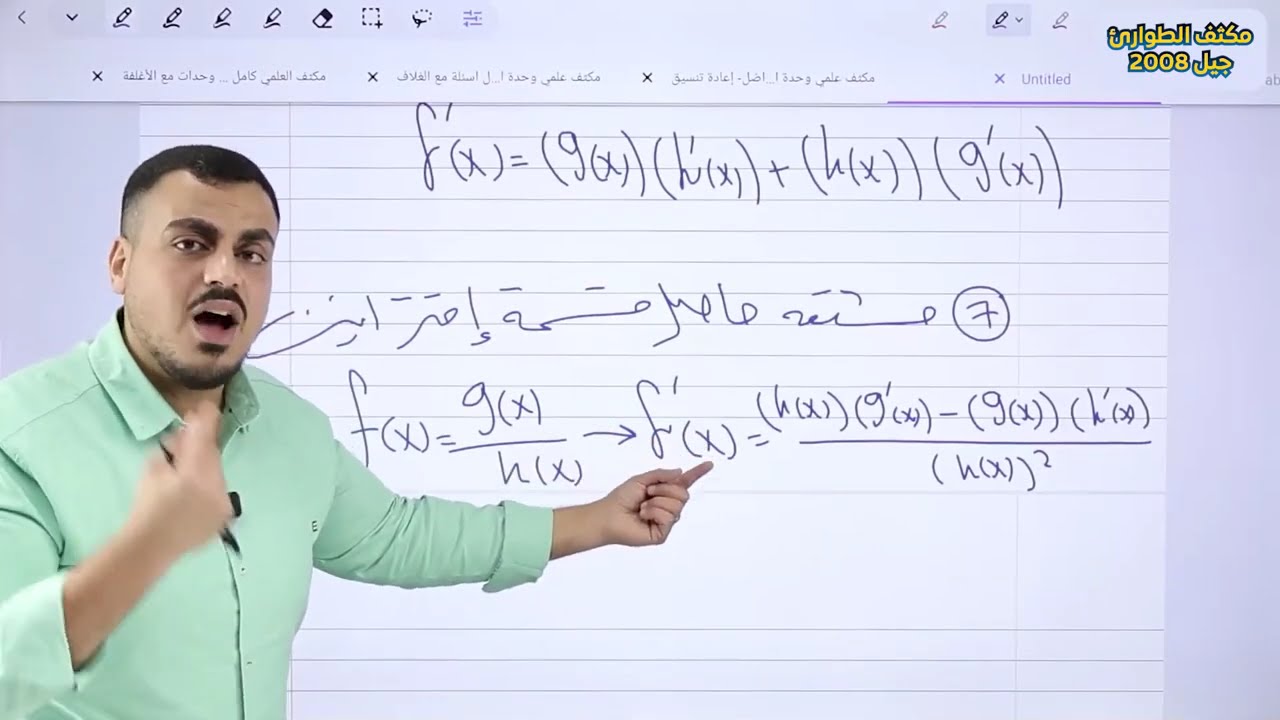 مكثف الطوارئ
جيل 2008
مكثف العلمي كامل ... وحدات مع الأغلفة
مكثف علمي وحدة ا...ل اسئلة مع الغلاف
مكثف علمي وحدة ا...اضل- إعادة تنسيق
Untitled
f'(x) = (g(x)) (h'(x)) + (h(x)) (g'(x))
7 مشتقة حاصل قسمة إقترانين
f(x) = g(x) / h(x) → f'(x) = (h(x)) (g'(x)) − (g(x)) (h'(x)) / (h(x))²